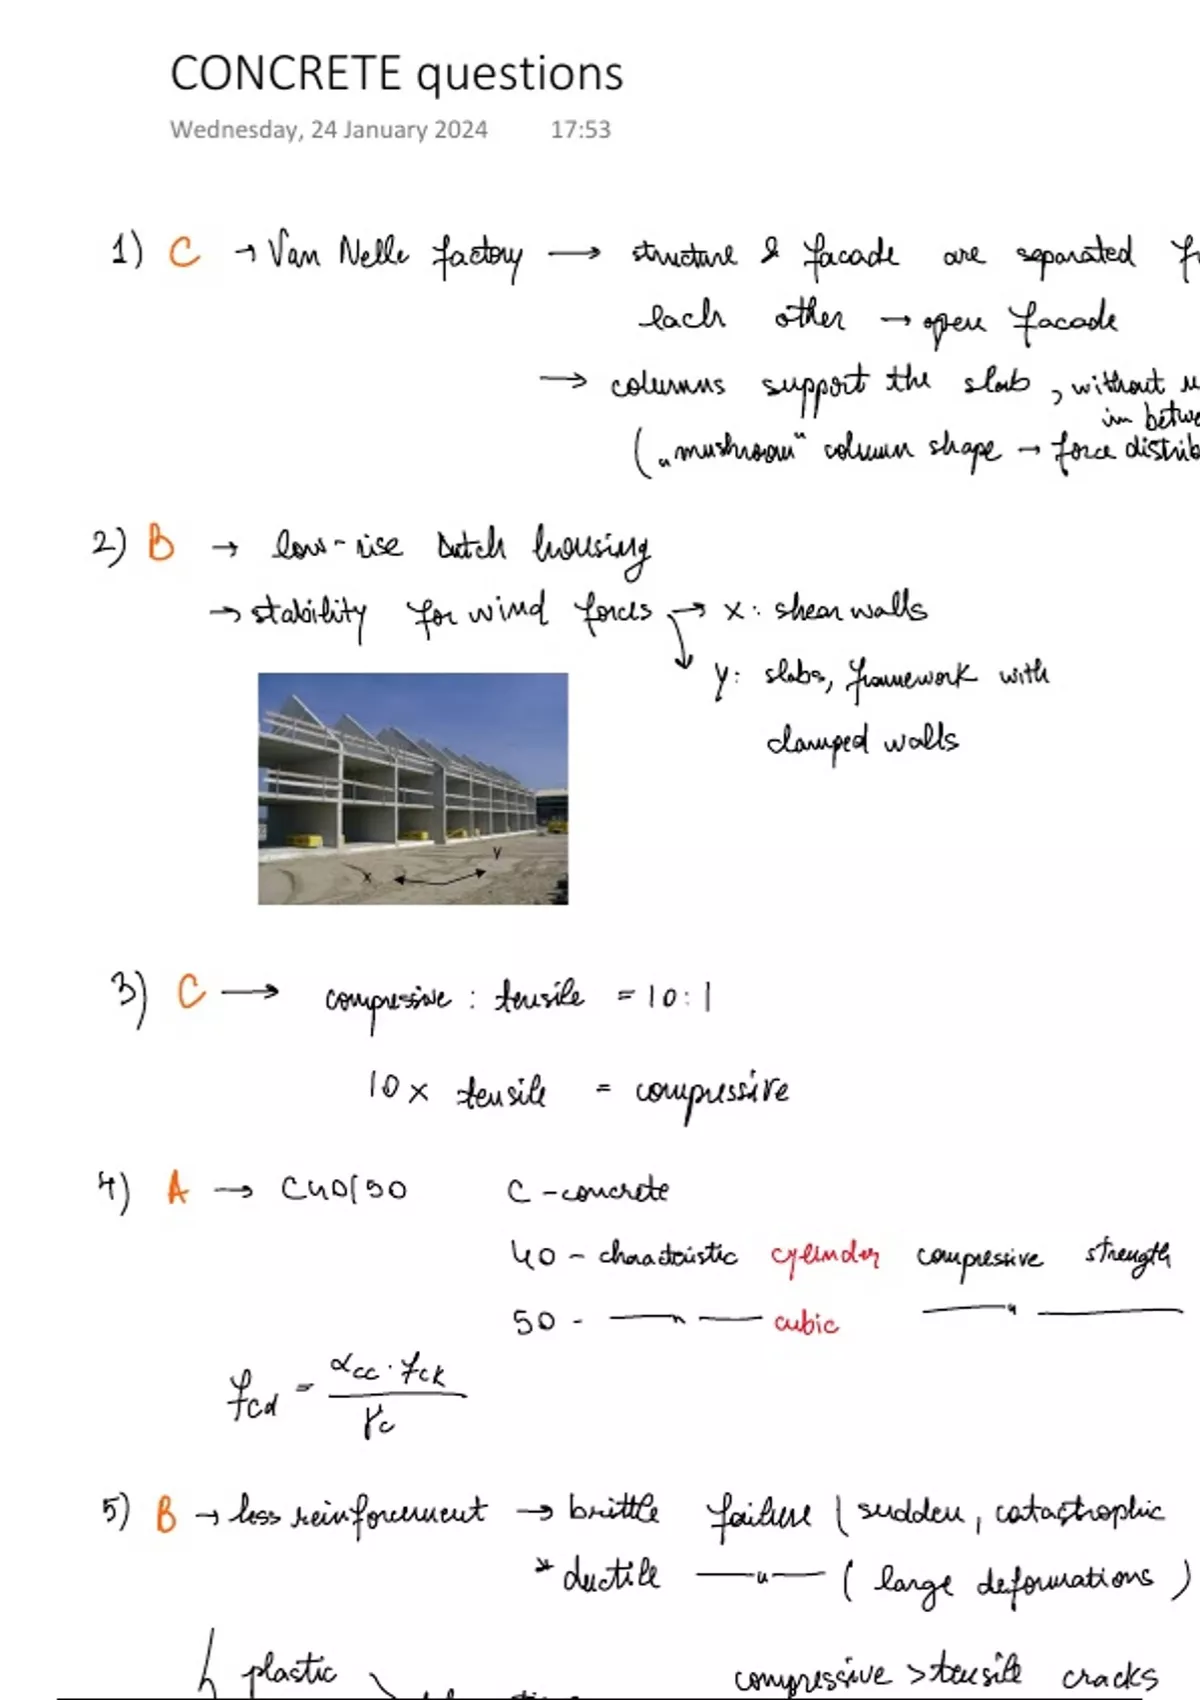 CONCRETE questions
Wednesday, 24 January 2024 17:53
1) C → Van Nelle factory → structure & facade are separated
each other → open facade
→ columns support the slab, without
in betwe
("mushroom" column shape → force distrib
2) B → low-rise Dutch housing
→ stability for wind forces → x: shear walls
y: slabs, framework with
clamped walls
x y
3) C → compressive : tensile = 10:1
10 x tensile = compressive
4) A → C40/50 C - concrete
40 - charactristic cylinder compressive strength
50 - —"— cubic —"—
fcd = αcc · fck / γc
5) B → less reinforcement → brittle failure ( sudden, catastrophic
* ductile —"— ( large deformations )
plastic compressive > tensile cracks